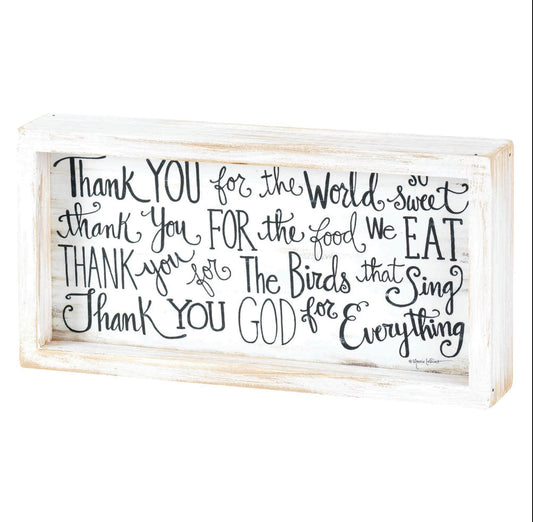 Thank YOU for the World so sweet
thank you FOR the food we EAT
THANK you for The Birds that Sing
Thank YOU GOD for Everything